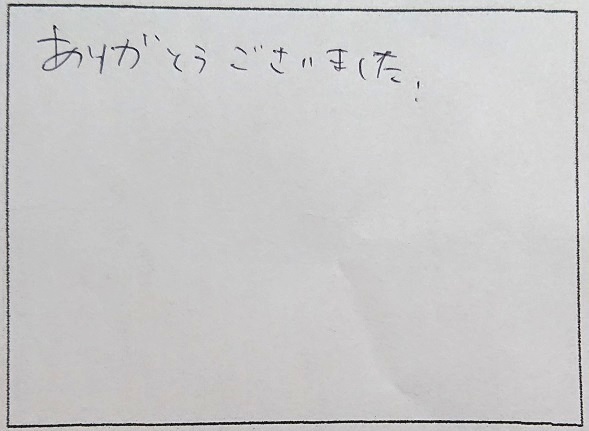 ありがとうございました!